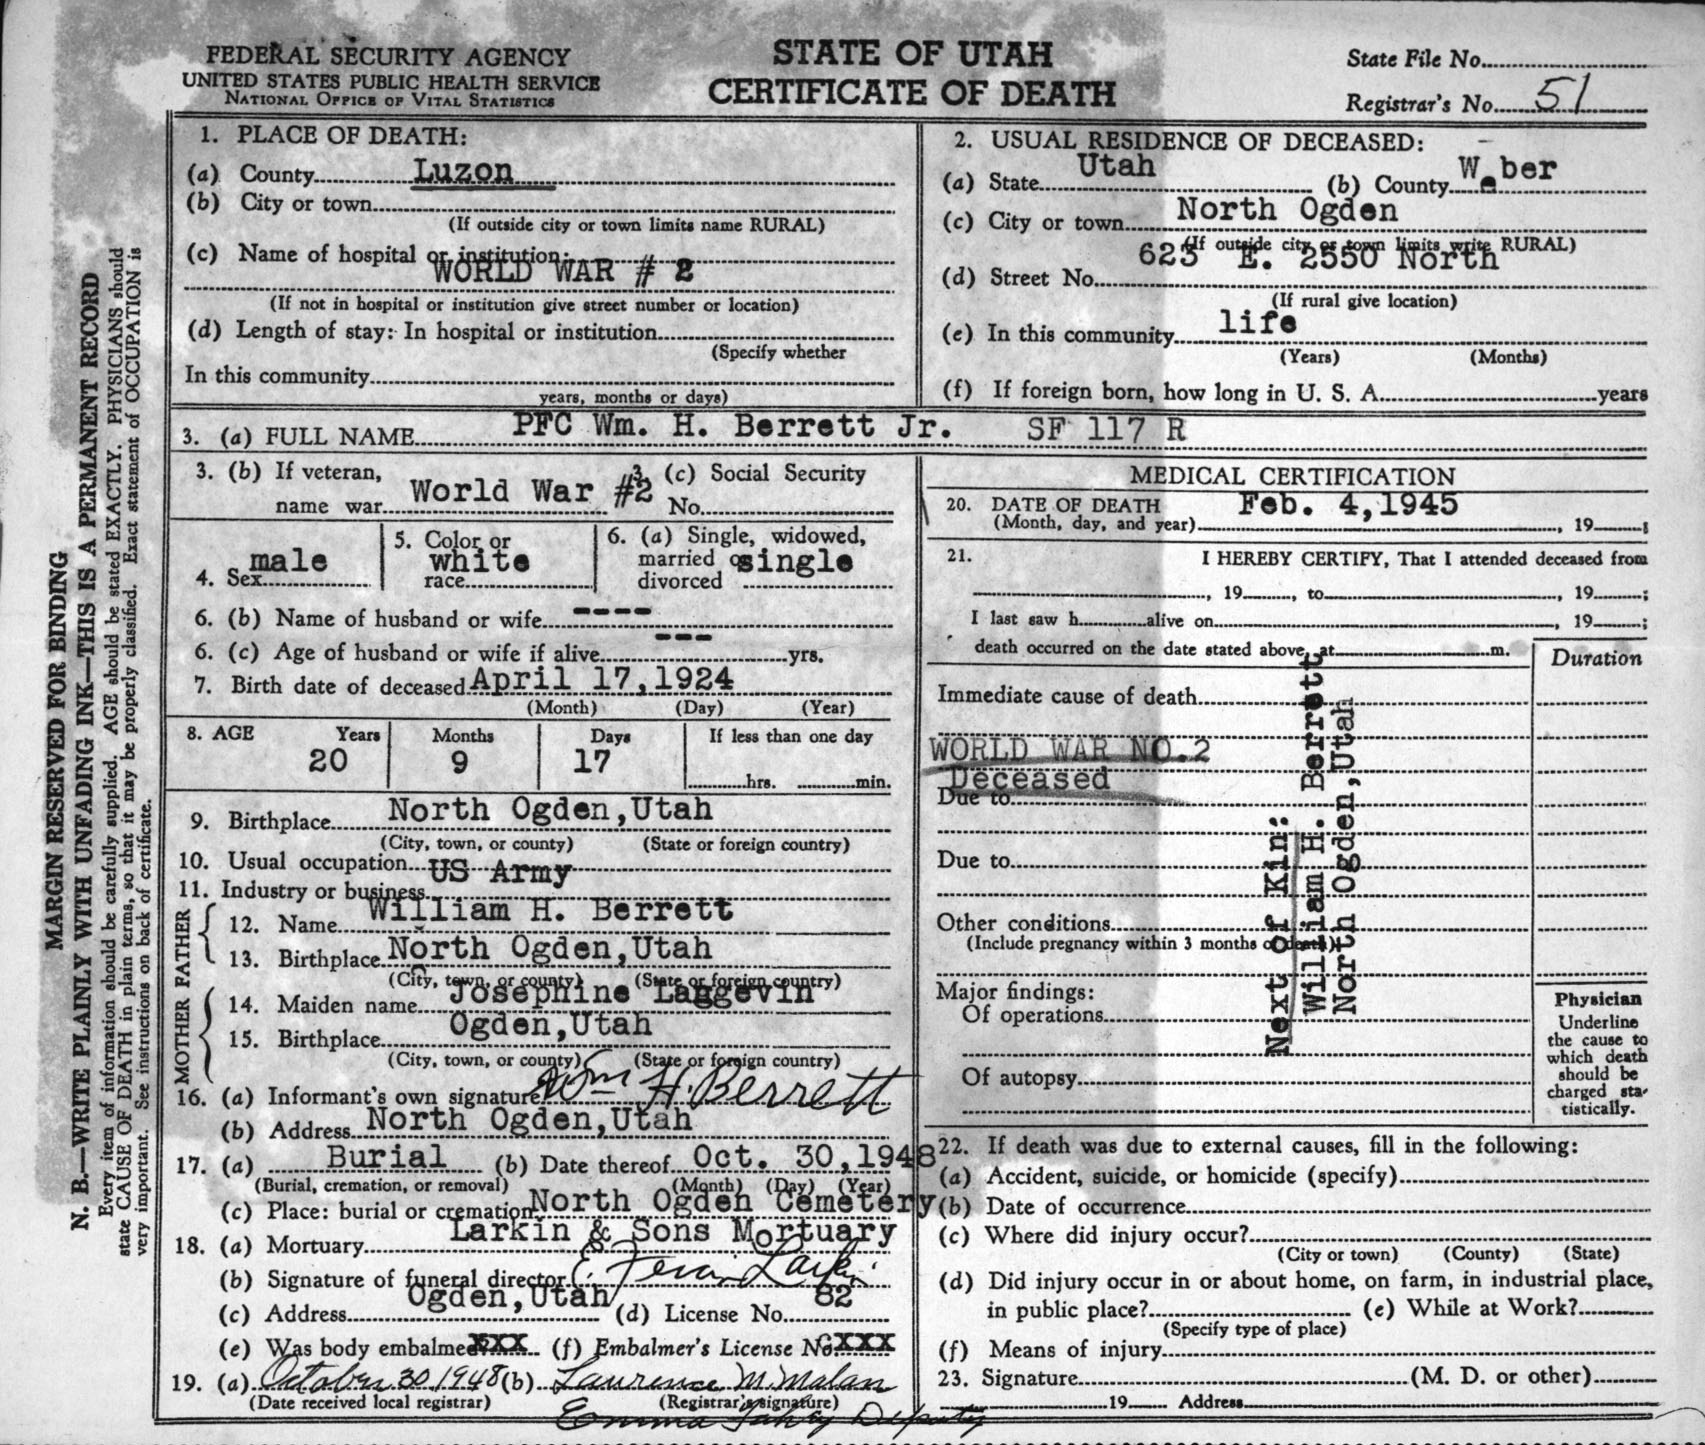 FEDERAL SECURITY AGENCY
UNITED STATES PUBLIC HEALTH SERVICE
NATIONAL OFFICE OF VITAL STATISTICS
STATE OF UTAH
CERTIFICATE OF DEATH
State File No.
Registrar's No. 51
MARGIN RESERVED FOR BINDING
N. B.—WRITE PLAINLY WITH UNFADING INK—THIS IS A PERMANENT RECORD
Every item of information should be carefully supplied. AGE should be stated EXACTLY. PHYSICIANS should
state CAUSE OF DEATH in plain terms, so that it may be properly classified. Exact statement of OCCUPATION is
very important. See instructions on back of certificate.
1. PLACE OF DEATH:
(a) County Luzon
(b) City or town
(If outside city or town limits name RURAL)
(c) Name of hospital or institution:
WORLD WAR # 2
(If not in hospital or institution give street number or location)
(d) Length of stay: In hospital or institution
(Specify whether
In this community
years, months or days)
2. USUAL RESIDENCE OF DECEASED:
(a) State Utah (b) County Weber
(c) City or town North Ogden
(If outside city or town limits write RURAL)
(d) Street No. 623 E. 2550 North
(If rural give location)
(e) In this community life
(Years) (Months)
(f) If foreign born, how long in U. S. A. years
3. (a) FULL NAME PFC Wm. H. Berrett Jr. SF 117 R
3. (b) If veteran, 3. (c) Social Security
name war World War #2 No.
4. Sex male
5. Color or race white
6. (a) Single, widowed, married or divorced single
6. (b) Name of husband or wife ----
6. (c) Age of husband or wife if alive --- yrs.
7. Birth date of deceased April 17,1924
(Month) (Day) (Year)
8. AGE Years Months Days If less than one day
20 9 17 hrs. min.
9. Birthplace North Ogden,Utah
(City, town, or county) (State or foreign country)
10. Usual occupation US Army
11. Industry or business
FATHER
12. Name William H. Berrett
13. Birthplace North Ogden,Utah
(City, town, or county) (State or foreign country)
MOTHER
14. Maiden name Josephine Langevin
15. Birthplace Ogden,Utah
(City, town, or county) (State or foreign country)
16. (a) Informant's own signature Wm H. Berrett
(b) Address North Ogden,Utah
17. (a) Burial (b) Date thereof Oct. 30,1948
(Burial, cremation, or removal) (Month) (Day) (Year)
(c) Place: burial or cremation North Ogden Cemetery
18. (a) Mortuary Larkin & Sons Mortuary
(b) Signature of funeral director Larkin
(c) Address Ogden,Utah (d) License No. 82
(e) Was body embalmed xxx (f) Embalmer's License No. xxx
19. (a) October 30 1948 (b) Laurence M. Malan
(Date received local registrar) (Registrar's signature)
Emma Deputy
MEDICAL CERTIFICATION
20. DATE OF DEATH Feb. 4,1945
(Month, day, and year) , 19 ;
21. I HEREBY CERTIFY, That I attended deceased from
, 19 , to , 19 ;
I last saw h alive on , 19 ;
death occurred on the date stated above, at m.
Duration
Immediate cause of death
WORLD WAR NO.2
Deceased
Due to
Due to
Other conditions
(Include pregnancy within 3 months of death)
Next of Kin:
William H. Berrett
North Ogden,Utah
Major findings:
Of operations
Of autopsy
Physician
Underline
the cause to
which death
should be
charged sta-
tistically.
22. If death was due to external causes, fill in the following:
(a) Accident, suicide, or homicide (specify)
(b) Date of occurrence
(c) Where did injury occur?
(City or town) (County) (State)
(d) Did injury occur in or about home, on farm, in industrial place,
in public place? (e) While at Work?
(Specify type of place)
(f) Means of injury
23. Signature (M. D. or other)
19 Address